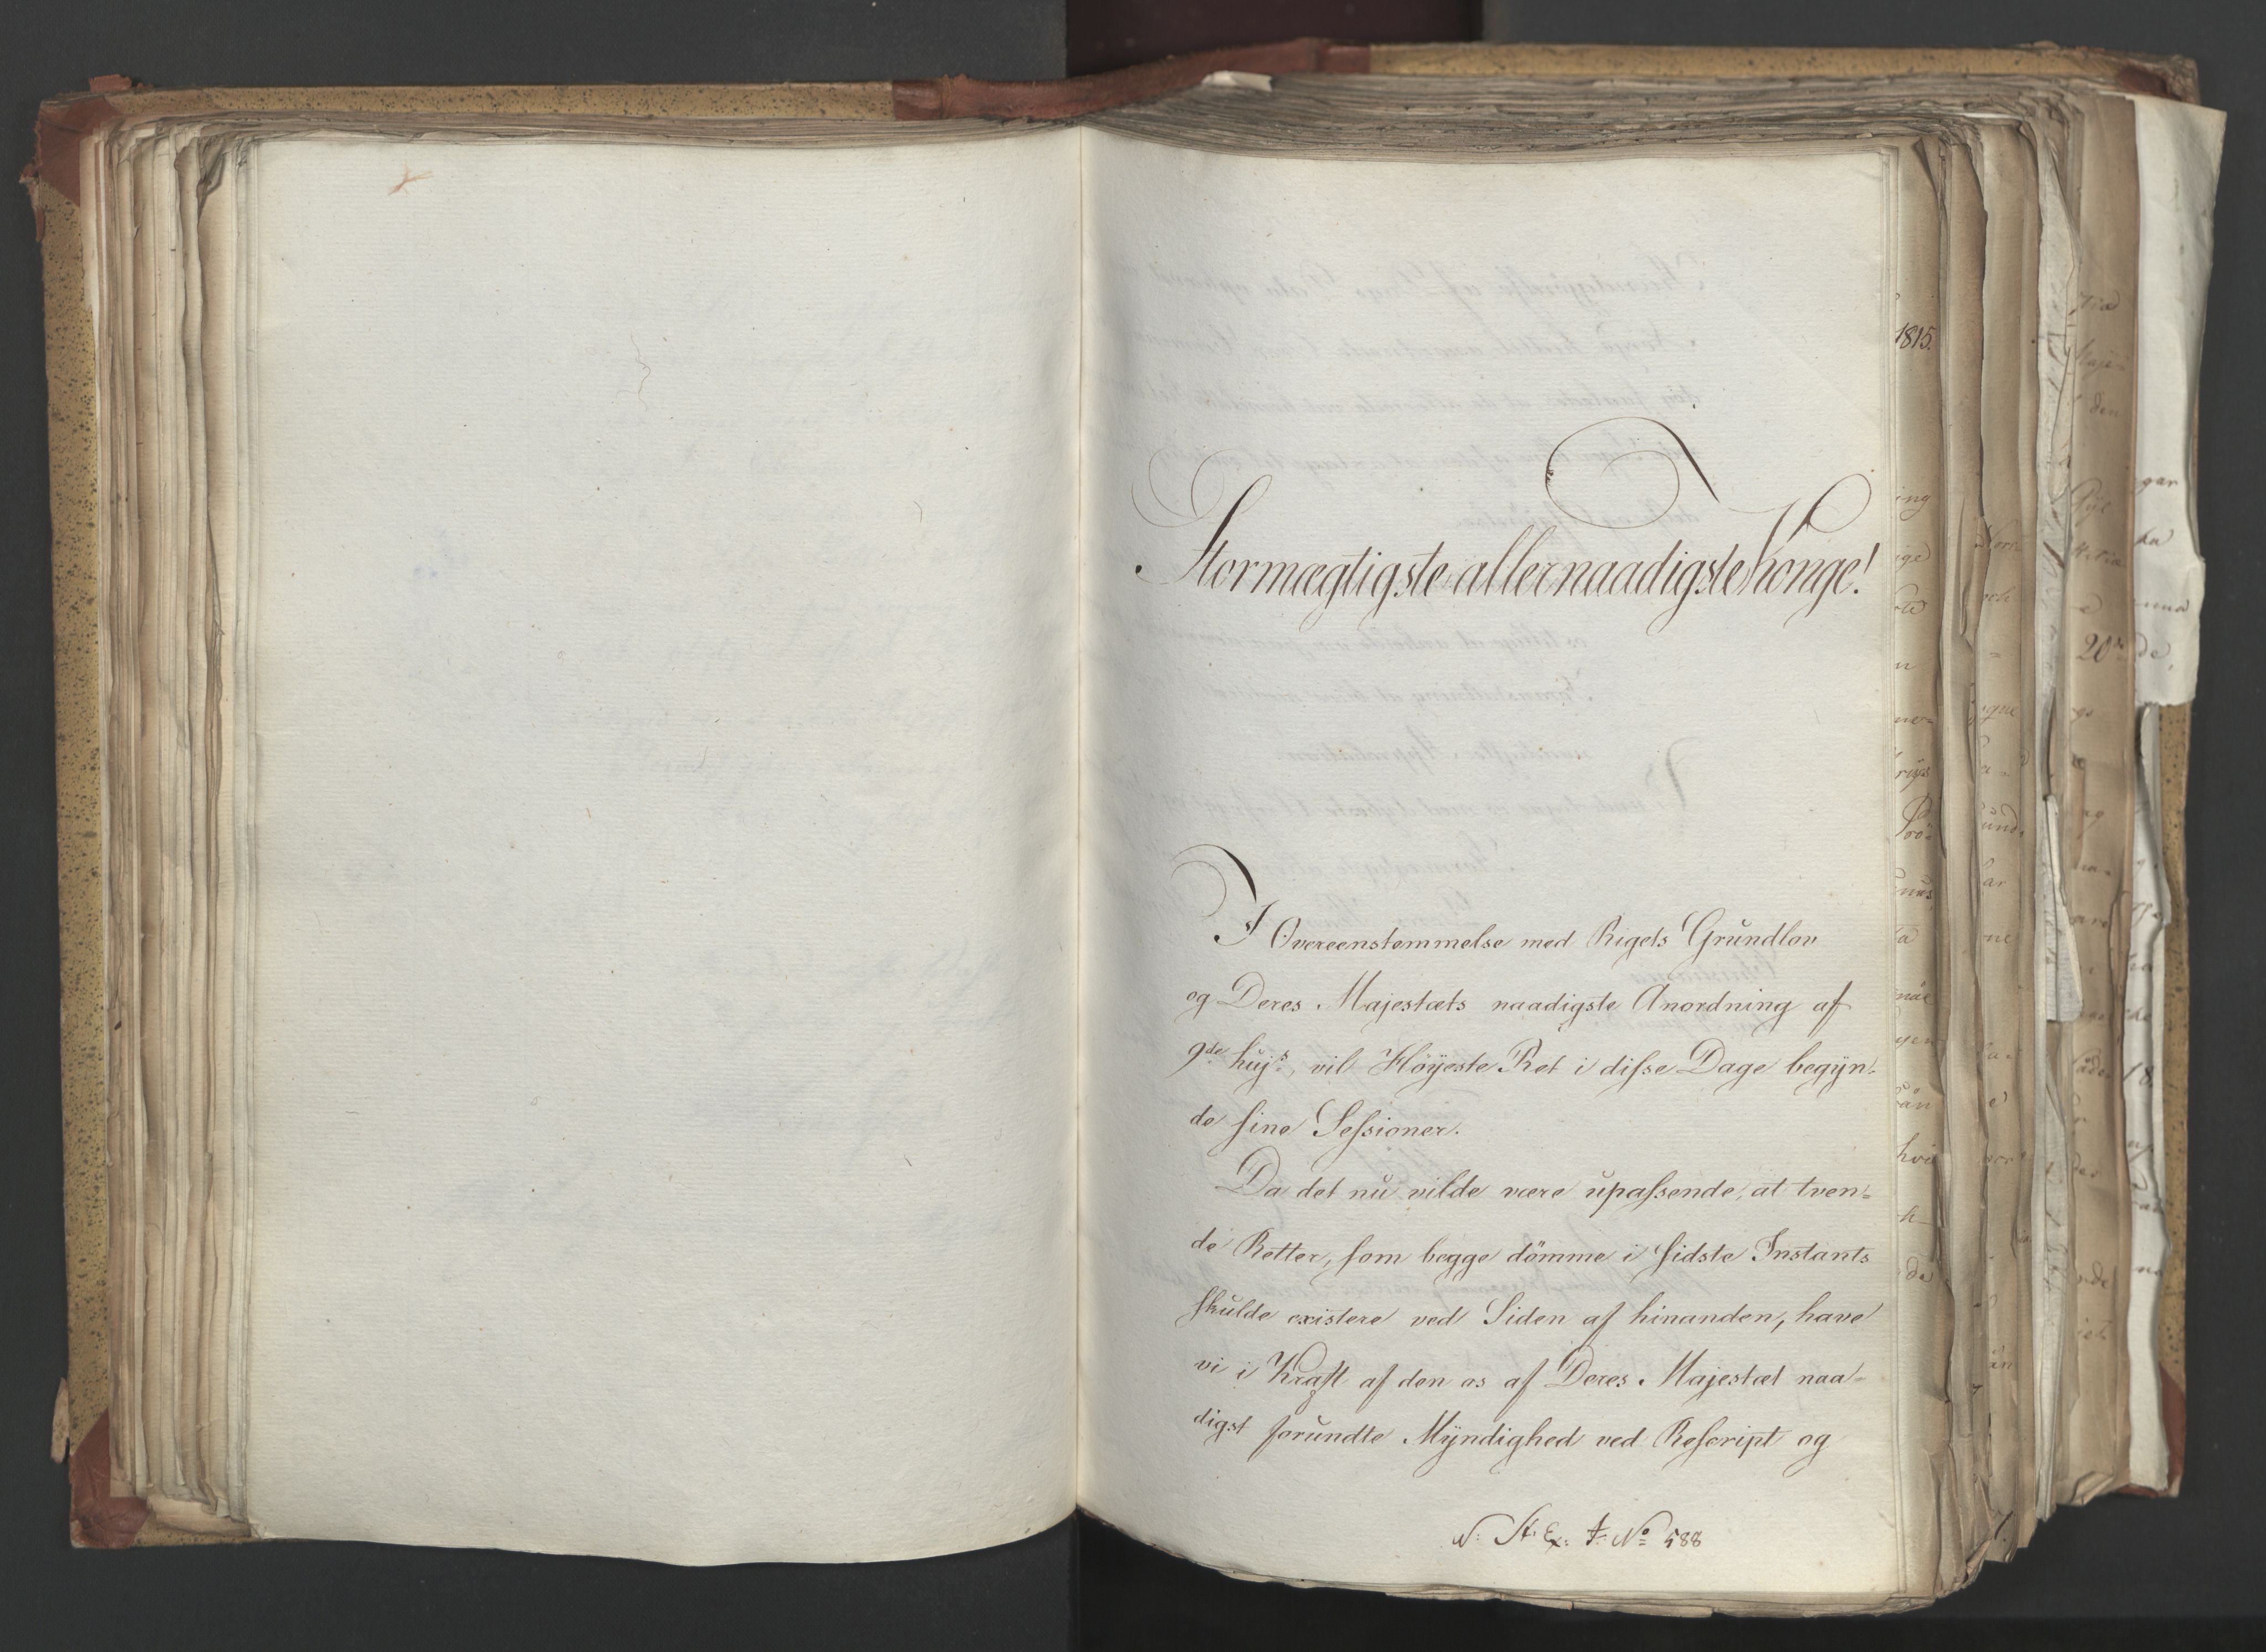 Stormægtigste allernaadigste Konge!
I Overeenstemmelse med Rigets Grundlov
og Deres Majestæts naadigste Anordning af
9de huj:s, vil Höÿeste Ret i disse Dage begÿn-
de sine Sessioner.
Da det nu vilde være upassende, at tven=
de Retter, som begge dömme i sidste Instants
skulde existere ved Siden af hinanden, have
vi i Kraft af den os af Deres Majestæt naa-
digst forundte Mÿndighed ved Rescript og
N: St: Ex: J: No 588
1815.
20de